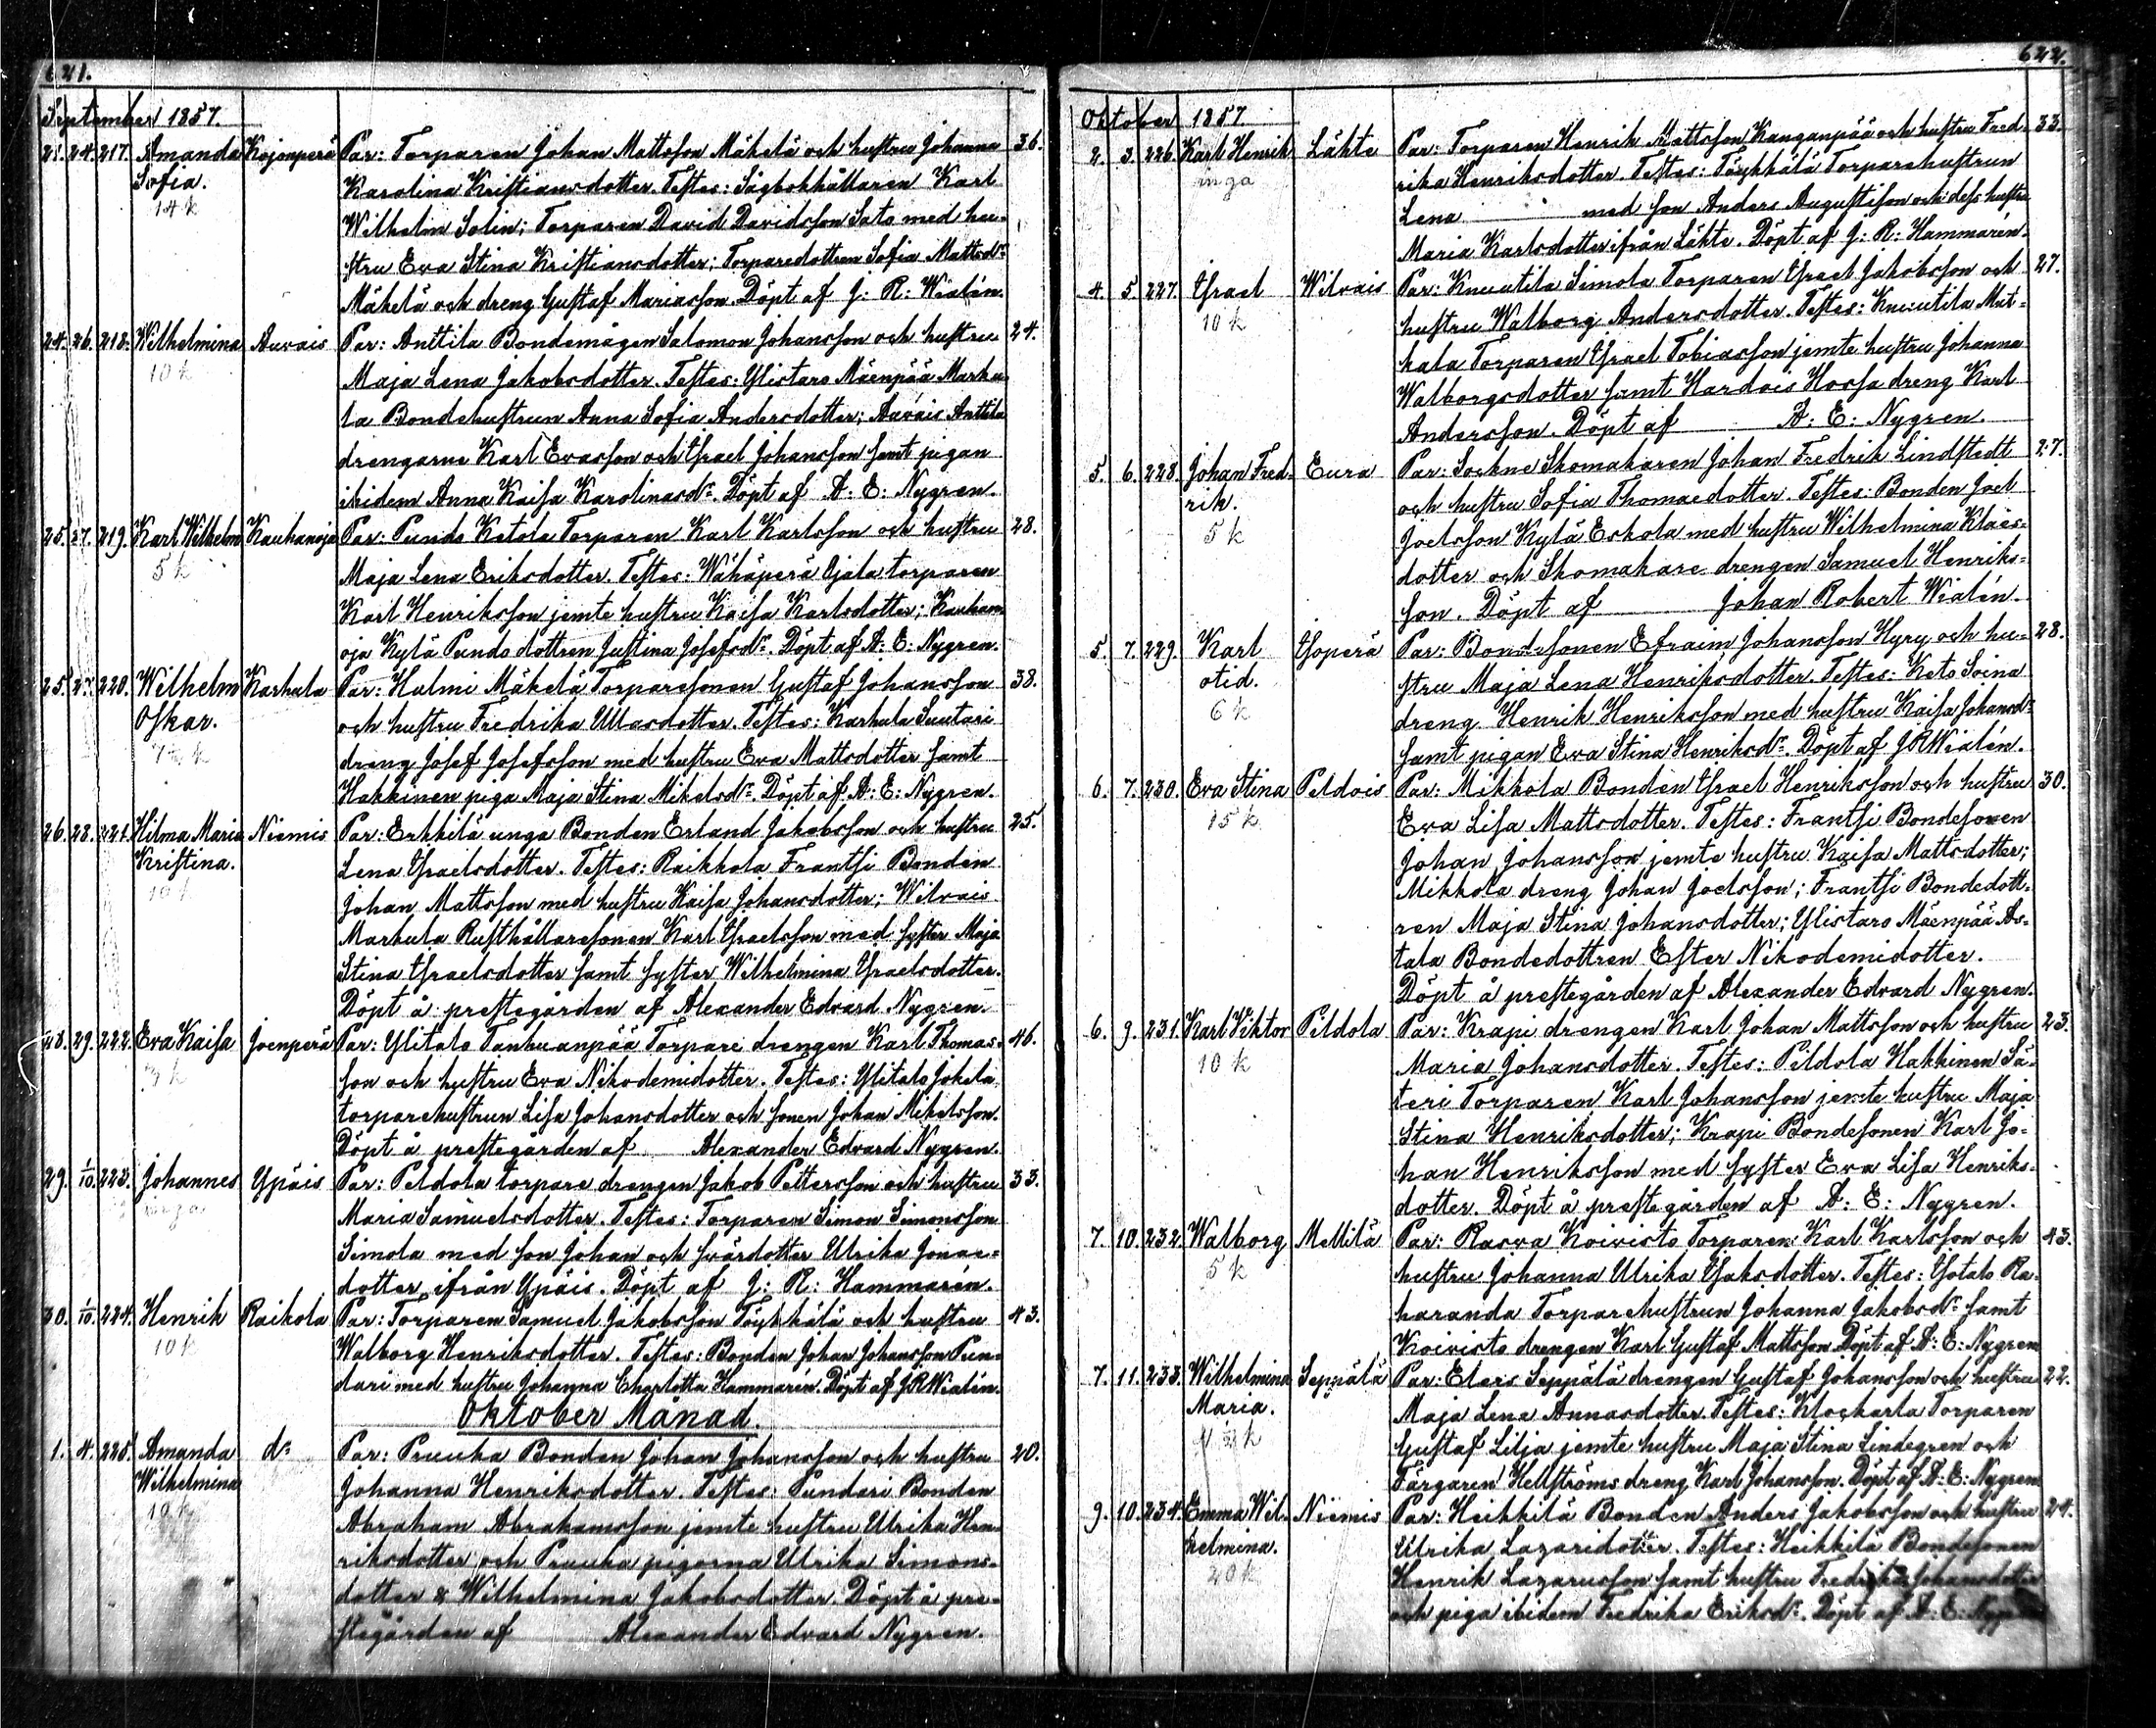 621.
September 1857.
21. 24. 217. Amanda Kojonperä Par: Torparen Johan Mattsson Mäkelä och hustru Johanna 36.
Sofia. Karolina Kristiansdotter. Testes: Sågbokhållaren Karl
14 k Wilhelm Solin; Torparen David Davidsson Sato med hu-
stru Eva Stina Kristiansdotter; Torparedottren Sofia Mattsdr
Mäkelä och dreng Gustaf Mariasson. Döpt af J: R: Wialén.
24. 26. 218. Wilhelmina Auvais Par: Anttila Bondemågen Salomon Johansson och hustru 24.
10 k Maja Lena Jakobsdotter. Testes: Ylistaro Mäenpää Marku-
la Bondehustrun Anna Sofia Andersdotter; Auvais Anttila
drengarne Karl Evasson och Israel Johansson samt pigan
ibidem Anna Kaisa Karolinasdr. Döpt af A: E: Nygren.
25. 27. 219. Karl Wilhelm Kauhanoja Par: Pundo Ketola Torparen Karl Karlsson och hustru 28.
5 k Maja Lena Eriksdotter. Testes: Wähäperä Ojala torparen
Karl Henriksson jemte hustru Kaisa Karlsdotter; Kauhan-
oja Kylä Pundo dottren Justina Josefsdr. Döpt af A: E: Nygren.
25. 27. 220. Wilhelm Karhula Par: Halmi Mäkelä Torparesonen Gustaf Johansson 38.
Oskar. och hustru Fredrika Ullasdotter. Testes: Karhula Suutari
dreng Josef Josefsson med hustru Eva Mattsdotter samt
Hakkinen piga Maja Stina Mikelsdr. Döpt af A: E: Nygren.
26. 28. 221. Hilma Maria Niemis Par: Erkkilä unga Bonden Erland Jakobsson och hustru 25.
Kristina. Lena Israelsdotter. Testes: Raikkola Frantsi Bonden
10 k Johan Mattsson med hustru Kaisa Johansdotter; Wilvais
Markula Rusthållaresonen Karl Israelsson med syster Maja
Stina Israelsdotter samt syster Wilhelmina Israelsdotter.
Döpt å prestegården af Alexander Edvard Nygren.
28. 29. 222. Eva Kaisa Joenperä Par: Ylitalo Tanhuanpää Torpare drengen Karl Thomas- 46.
son och hustru Eva Nikodemidotter. Testes: Ylitalo Jokela
torparehustrun Lisa Johansdotter och sonen Johan Mikelsson.
Döpt å prestegården af Alexander Edvard Nygren.
29. 1/10 223. Johannes Ypäis Par: Peldola torpare drengen Jakob Pettersson och hustru 33.
inga Maria Samuelsdotter. Testes: Torparen Simon Simonsson
Simola med son Johan och svärdotter Ulrika Jonas-
dotter ifrån Ypäis. Döpt af J: R: Hammarén.
30. 1/10 224. Henrik Raikola Par: Torparen Samuel Jakobsson Töykkälä och hustru 43.
10 k Walborg Henriksdotter. Testes: Bonden Johan Johansson Pun-
dari med hustru Johanna Charlotta Hammarén. Döpt af J R Wialén.
Oktober Månad.
1. 4. 225. Amanda do Par: Pruuka Bonden Johan Johansson och hustru 20.
Wilhelmina Johanna Henriksdotter. Testes: Pundari Bonden
10 k Abraham Abrahamsson jemte hustru Ulrika Hen-
riksdotter och Pruuka pigorna Ulrika Simons-
dotter & Wilhelmina Jakobsdotter. Döpt å pre-
stegården af Alexander Edvard Nygren.
622.
Oktober 1857
2. 3. 226. Karl Henrik Lähte Par: Torparen Henrik Mattsson Kanganpää och hustru Fred- 33.
inga rika Henriksdotter. Testes: Töykkälä Torparehustrun
Lena med son Anders Augustsson och dess hustru
Maria Karlsdotter ifrån Lähte. Döpt af J: R: Hammarén.
4. 5. 227. Israel Wilvais Par: Knuutila Simola Torparen Israel Jakobsson och 27.
10 k hustru Walborg Andersdotter. Testes: Knuutila Mut-
kala Torparen Israel Tobiasson jemte hustru Johanna
Walborgsdotter samt Hardois Hossa dreng Karl
Andersson. Döpt af A: E: Nygren.
5. 6. 228. Johan Fred- Eura Par: Sockne Skomakaren Johan Fredrik Lindstedt 27.
rik. och hustru Sofia Thomasdotter. Testes: Bonden Joel
5 k Joelsson Kylä Eskola med hustru Wilhelmina Klaes-
dotter och Skomakare drengen Samuel Henriks-
son. Döpt af Johan Robert Wialén.
5. 7. 229. Karl Isoperä Par: Bondesonen Efraim Johansson Hyry och hu- 28.
otid. stru Maja Lena Henriksdotter. Testes: Keto Soina
6 k dreng Henrik Henriksson med hustru Kaisa Johansdr
samt pigan Eva Stina Henriksdr. Döpt af J R Wialén.
6. 7. 230. Eva Stina Peldois Par: Mikkola Bonden Israel Henriksson och hustru 30.
15 k Eva Lisa Mattsdotter. Testes: Frantsi Bondesonen
Johan Johansson jemte hustru Kaisa Mattsdotter;
Mikkola dreng Johan Joelsson; Frantsi Bondedott-
ren Maja Stina Johansdotter; Ylistaro Mäenpää As-
tala Bondedottren Ester Nikodemidotter.
Döpt å prestegården af Alexander Edvard Nygren.
6. 9. 231. Karl Viktor Pildola Par: Krapi drengen Karl Johan Mattsson och hustru 23.
10 k Maria Johansdotter. Testes: Pildola Hakkinen Sä-
teri Torparen Karl Johansson jemte hustru Maja
Stina Henriksdotter; Krapi Bondesonen Karl Jo-
han Henriksson med syster Eva Lisa Henriks-
dotter. Döpt å prestegården af A: E: Nygren.
7. 10. 232. Walborg Mellilä Par: Rasva Koivisto Torparen Karl Karlsson och 43.
5 k hustru Johanna Ulrika Isaksdotter. Testes: Isotalo Ra-
haranda Torparehustrun Johanna Jakobsdr samt
Koivisto drengen Karl Gustaf Mattsson. Döpt af A: E: Nygren
7. 11. 233. Wilhelmina Seppälä Par: Elers Seppälä drengen Gustaf Johansson och hustru 22.
Maria. Maja Lena Annasdotter. Testes: Klockarla Torparen
Gustaf Lilja jemte hustru Maja Stina Lindegren och
Färgaren Hellströms dreng Karl Johansson. Döpt af A: E: Nygren
9. 10. 234. Emma Wil- Niemis Par: Heikkilä Bonden Anders Jakobsson och hustru 24.
helmina. Ulrika Lazaridotter. Testes: Heikkilä Bondesonen
20 k Henrik Lazarusson samt hustru Fredrika Johansdotter
och piga ibidem Fredrika Eriksdr. Döpt af A: E: Nygren